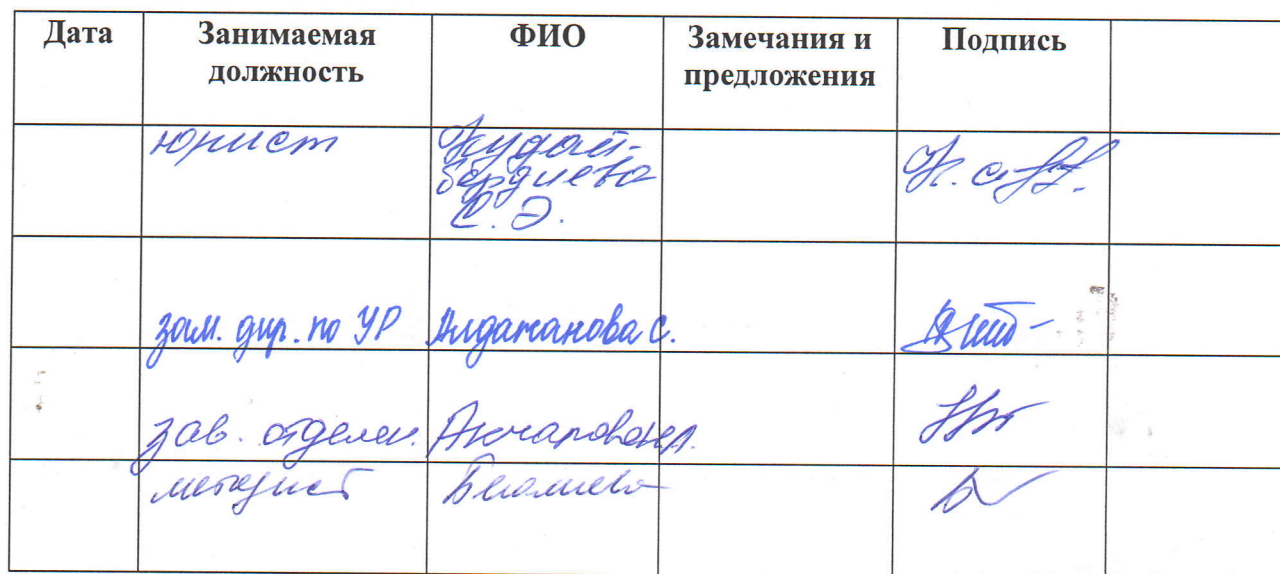 Дата Занимаемая должность ФИО Замечания и предложения Подпись
юрист Кудай-
бердиева
С. Э.
зам. дир. по УР Алдаганова С.
зав. отделен.
методист